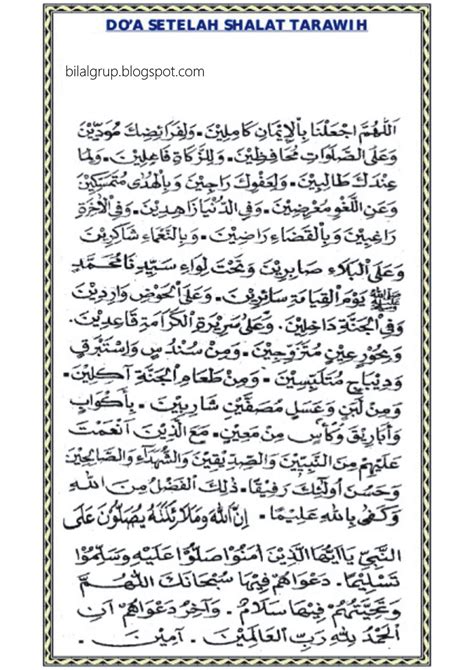 DO'A SETELAH SHALAT TARAWIH
bilalgrup.blogspot.com
اَللّٰهُمَّ اجْعَلْنَا بِالْاِيْمَانِ كَامِلِيْنَ. وَلِفَرَائِضِكَ مُؤَدِّيْنَ
وَعَلَى الصَّلَوَاتِ مُحَافِظِيْنَ. وَلِلزَّكَاةِ فَاعِلِيْنَ. وَلِمَا
عِنْدَكَ طَالِبِيْنَ. وَلِعَفْوِكَ رَاجِيْنَ وَبِالْهُدٰى مُتَمَسِّكِيْنَ
وَعَنِ اللَّغْوِ مُعْرِضِيْنَ. وَفِى الدُّنْيَا زَاهِدِيْنَ. وَفِى الْاٰخِرَةِ
رَاغِبِيْنَ وَبِالْقَضَاءِ رَاضِيْنَ. وَبِالنَّعْمَاءِ شَاكِرِيْنَ
وَعَلَى الْبَلَاءِ صَابِرِيْنَ وَتَحْتَ لِوَاءِ سَيِّدِنَا مُحَمَّدٍ
ﷺ يَوْمَ الْقِيَامَةِ سَائِرِيْنَ. وَعَلَى الْحَوْضِ وَارِدِيْنَ
وَفِى الْجَنَّةِ دَاخِلِيْنَ. وَعَلٰى سَرِيْرَةِ الْكَرَامَةِ قَاعِدِيْنَ.
وَبِحُوْرِ عِيْنٍ مُتَزَوِّجِيْنَ. وَمِنْ سُنْدُسٍ وَاِسْتَبْرَقٍ
وَدِيْبَاجٍ مُتَلَبِّسِيْنَ. وَمِنْ طَعَامِ الْجَنَّةِ اٰكِلِيْنَ.
وَمِنْ لَبَنٍ وَعَسَلٍ مُصَفَّيْنِ شَارِبِيْنَ. بِاَكْوَابٍ
وَاَبَارِيْقَ وَكَأْسٍ مِنْ مَعِيْنٍ. مَعَ الَّذِيْنَ اَنْعَمْتَ
عَلَيْهِمْ مِنَ النَّبِيِّيْنَ وَالصِّدِّيْقِيْنَ وَالشُّهَدَاءِ وَالصَّالِحِيْنَ
وَحَسُنَ اُولٰئِكَ رَفِيْقًا. ذٰلِكَ الْفَضْلُ مِنَ اللهِ
وَكَفٰى بِاللهِ عَلِيْمًا. اِنَّ اللهَ وَمَلَائِكَتَهُ يُصَلُّوْنَ عَلَى
النَّبِيِّ يَا اَيُّهَا الَّذِيْنَ اٰمَنُوْا صَلُّوْا عَلَيْهِ وَسَلِّمُوْا
تَسْلِيْمًا. دَعْوَاهُمْ فِيْهَا سُبْحَانَكَ اللّٰهُمَّ
وَتَحِيَّتُهُمْ فِيْهَا سَلَامٌ. وَاٰخِرُ دَعْوَاهُمْ اَنِ
الْحَمْدُ لِلّٰهِ رَبِّ الْعَالَمِيْنَ. اٰمِيْنَ.